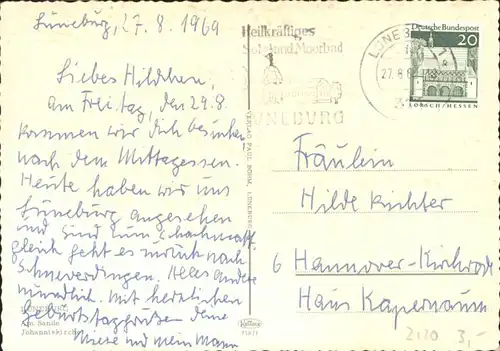 Lüneburg, 27.8.1969
Liebes Hildchen,
am Freitag, den 29.8.
kommen wir dich besuchen
nach dem Mittagessen.
Heute haben wir uns
Lüneburg angesehen
und sind zum "Schachmatt"
gleich geht es zurück nach
Schneverdingen. Alles andere
mündlich. Mit herzlichen
Geburtstagsgrüßen deine
Miese und mein Mann
Am Sande
Johanniskirche
VERLAG PAUL BÖHM, LÜNEBURG
Heilkräftiges
Sole und Moorbad
LÜNEBURG
27.8.6
Deutsche Bundespost
20
LORSCH/HESSEN
Fräulein
Hilde Richter
6 Hannover-Kirchrode
Haus Kapernaum
2120 3,-